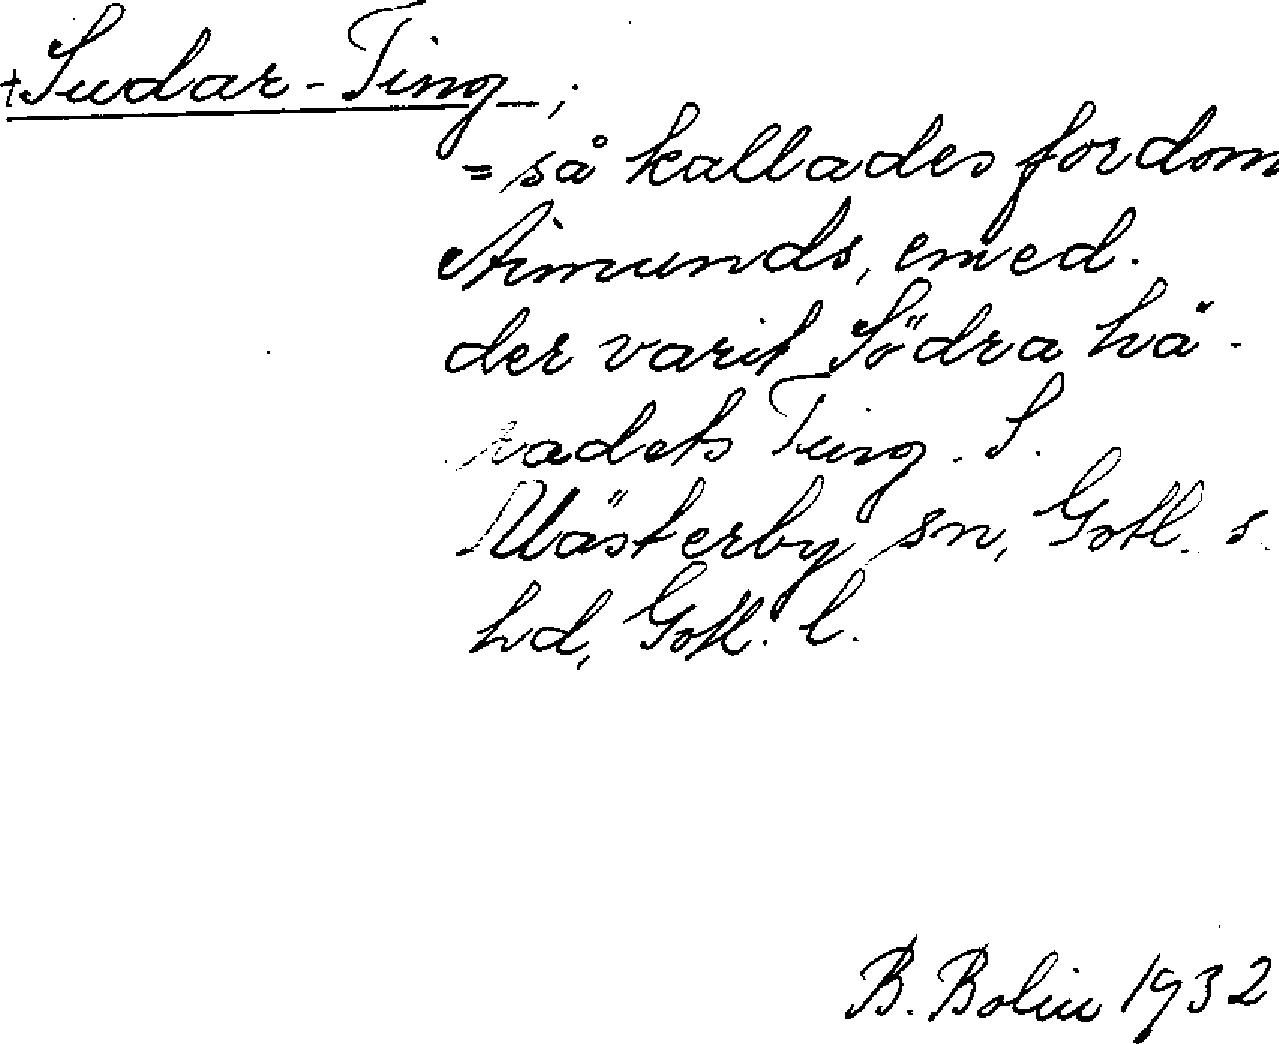 +Sudar-Ting_;
= så kallades fordom
Aimunds, emed.
der varit Södra hä-
radets Ting. I.
Västerby sn, Gotl. s.
hd, Gotl. l.
B. Bolin 1932